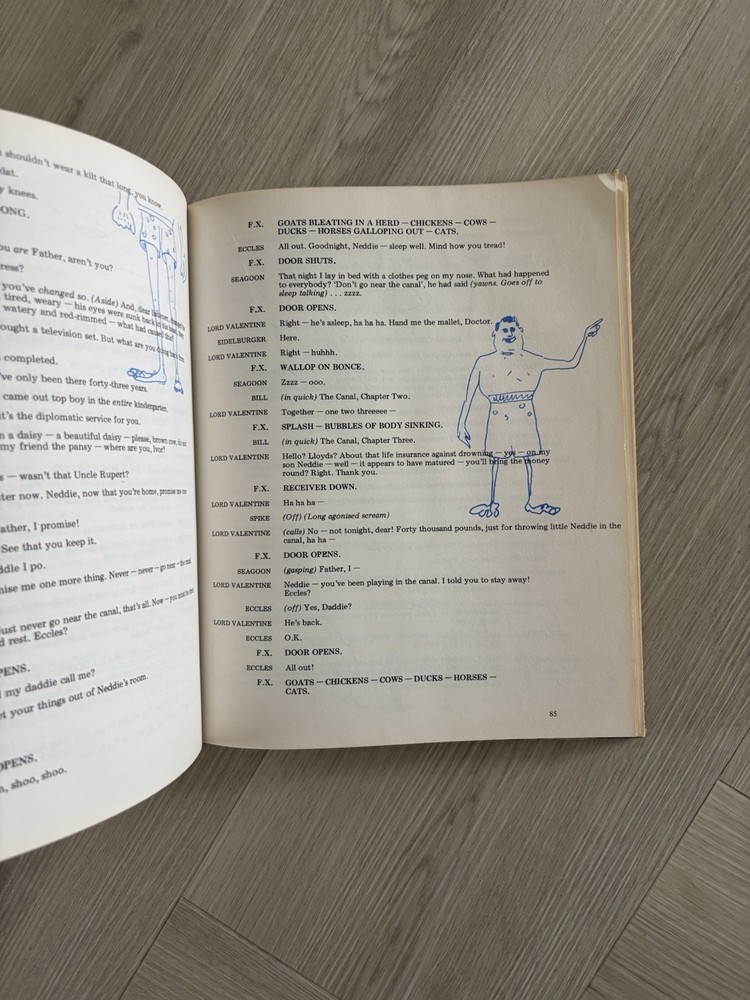 shouldn't wear a kilt that long, you know.
dat.
knees.
ONG.
you are Father, aren't you?
ress?
you've changed so. (Aside) And, dear
tired, weary — his eyes were sunk back in his
watery and red-rimmed — what had caused
ought a television set. But what are you
completed.
've only been there forty-three years.
came out top boy in the entire kindergarten.
it's the diplomatic service for you.
a daisy — a beautiful daisy — please, brown cow,
my friend the pansy — where are you,
s — wasn't that Uncle Rupert?
ter now. Neddie, now that you're home, promise me
ather, I promise!
See that you keep it.
ddle I po.
mise me one more thing. Never — never — go near — the
ust never go near the canal, that's all. Now — you must
rest. Eccles?
PENS.
my daddie call me?
et your things out of Neddie's room.
OPENS.
shoo, shoo.
F.X. GOATS BLEATING IN A HERD — CHICKENS — COWS —
DUCKS — HORSES GALLOPING OUT — CATS.
ECCLES All out. Goodnight, Neddie — sleep well. Mind how you tread!
F.X. DOOR SHUTS.
SEAGOON That night I lay in bed with a clothes peg on my nose. What had happened
to everybody? 'Don't go near the canal', he had said (yawns. Goes off to
sleep talking) . . . zzzz.
F.X. DOOR OPENS.
LORD VALENTINE Right — he's asleep, ha ha ha. Hand me the mallet, Doctor.
EIDELBURGER Here.
LORD VALENTINE Right — huhhh.
F.X. WALLOP ON BONCE.
SEAGOON Zzzz — ooo.
BILL (in quick) The Canal, Chapter Two.
LORD VALENTINE Together — one two threeeee —
F.X. SPLASH — BUBBLES OF BODY SINKING.
BILL (in quick) The Canal, Chapter Three.
LORD VALENTINE Hello? Lloyds? About that life insurance against drowning — yes — on my
son Neddie — well — it appears to have matured — you'll bring the money
round? Right. Thank you.
F.X. RECEIVER DOWN.
LORD VALENTINE Ha ha ha —
SPIKE (Off) (Long agonised scream)
LORD VALENTINE (calls) No — not tonight, dear! Forty thousand pounds, just for throwing little Neddie in the
canal, ha ha —
F.X. DOOR OPENS.
SEAGOON (gasping) Father, I —
LORD VALENTINE Neddie — you've been playing in the canal. I told you to stay away!
Eccles?
ECCLES (off) Yes, Daddie?
LORD VALENTINE He's back.
ECCLES O.K.
F.X. DOOR OPENS.
ECCLES All out!
F.X. GOATS — CHICKENS — COWS — DUCKS — HORSES —
CATS.
85